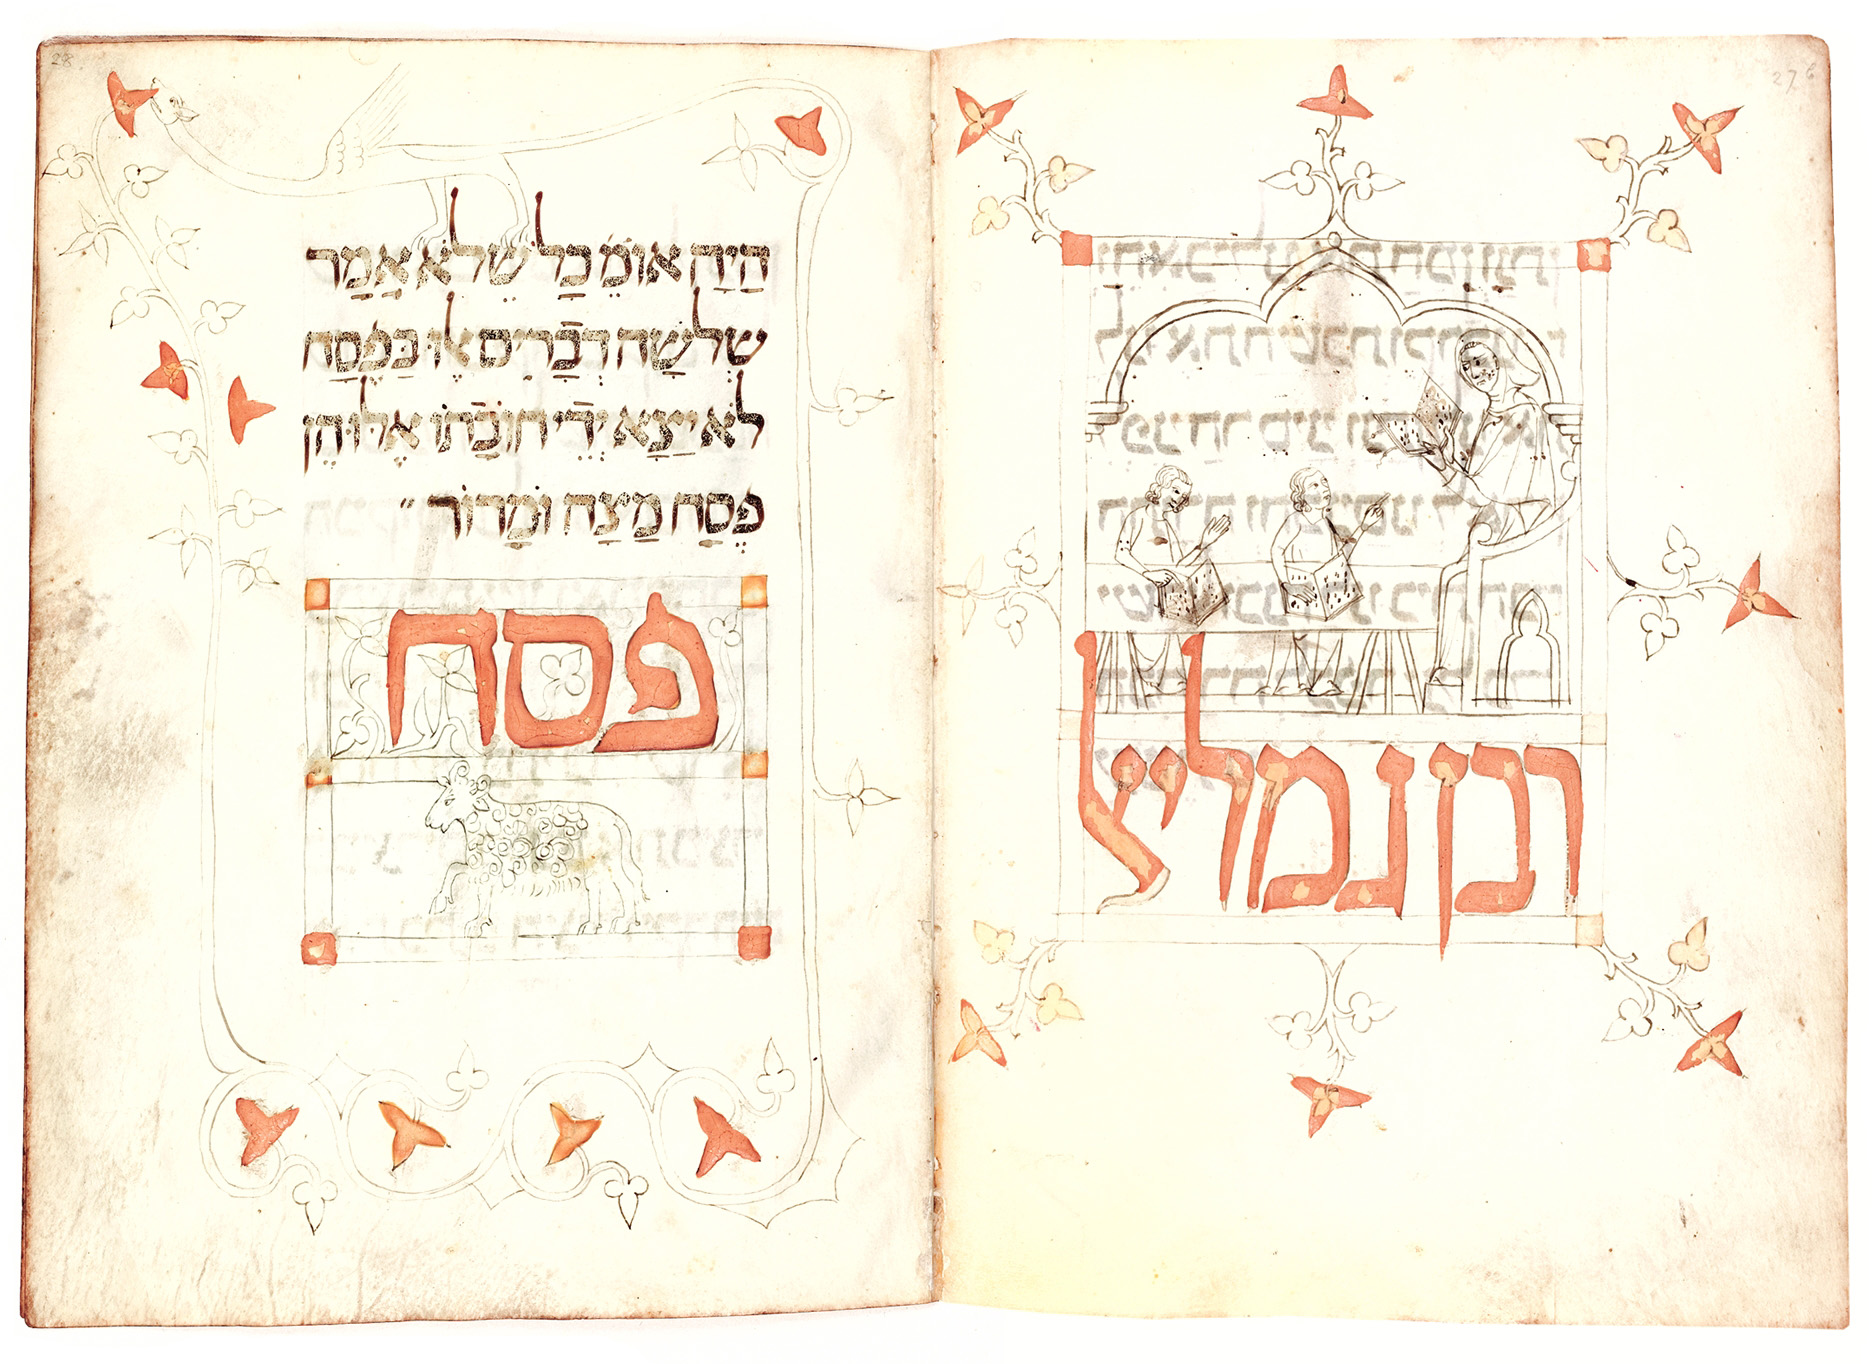 27b
רבן גמליﭏ
28
הָיָה אוֹמֵ כָל שֶלֹא אָמַר
שְלשָה דְבָרִים אֵלּוּ בַפֶּסַח
לֹא יָצָא יְדֵי חוֹבָתוֹ אֵלּוּ הֵן
פֶסַח מַצָה וּמָרוֹר ״
פסח